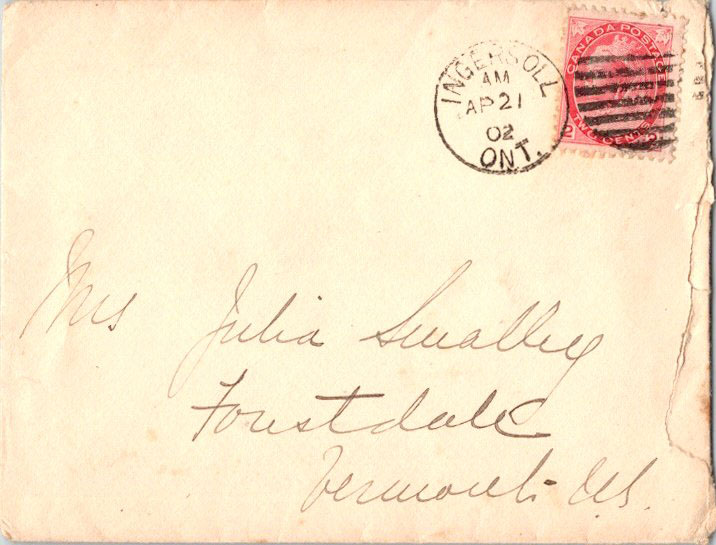 INGERSOLL
AM
AP 21
02
ONT.
CANADA POSTAGE
TWO CENTS
2 2
Mrs Julia Smalley
Forestdale
Vermont U.S.